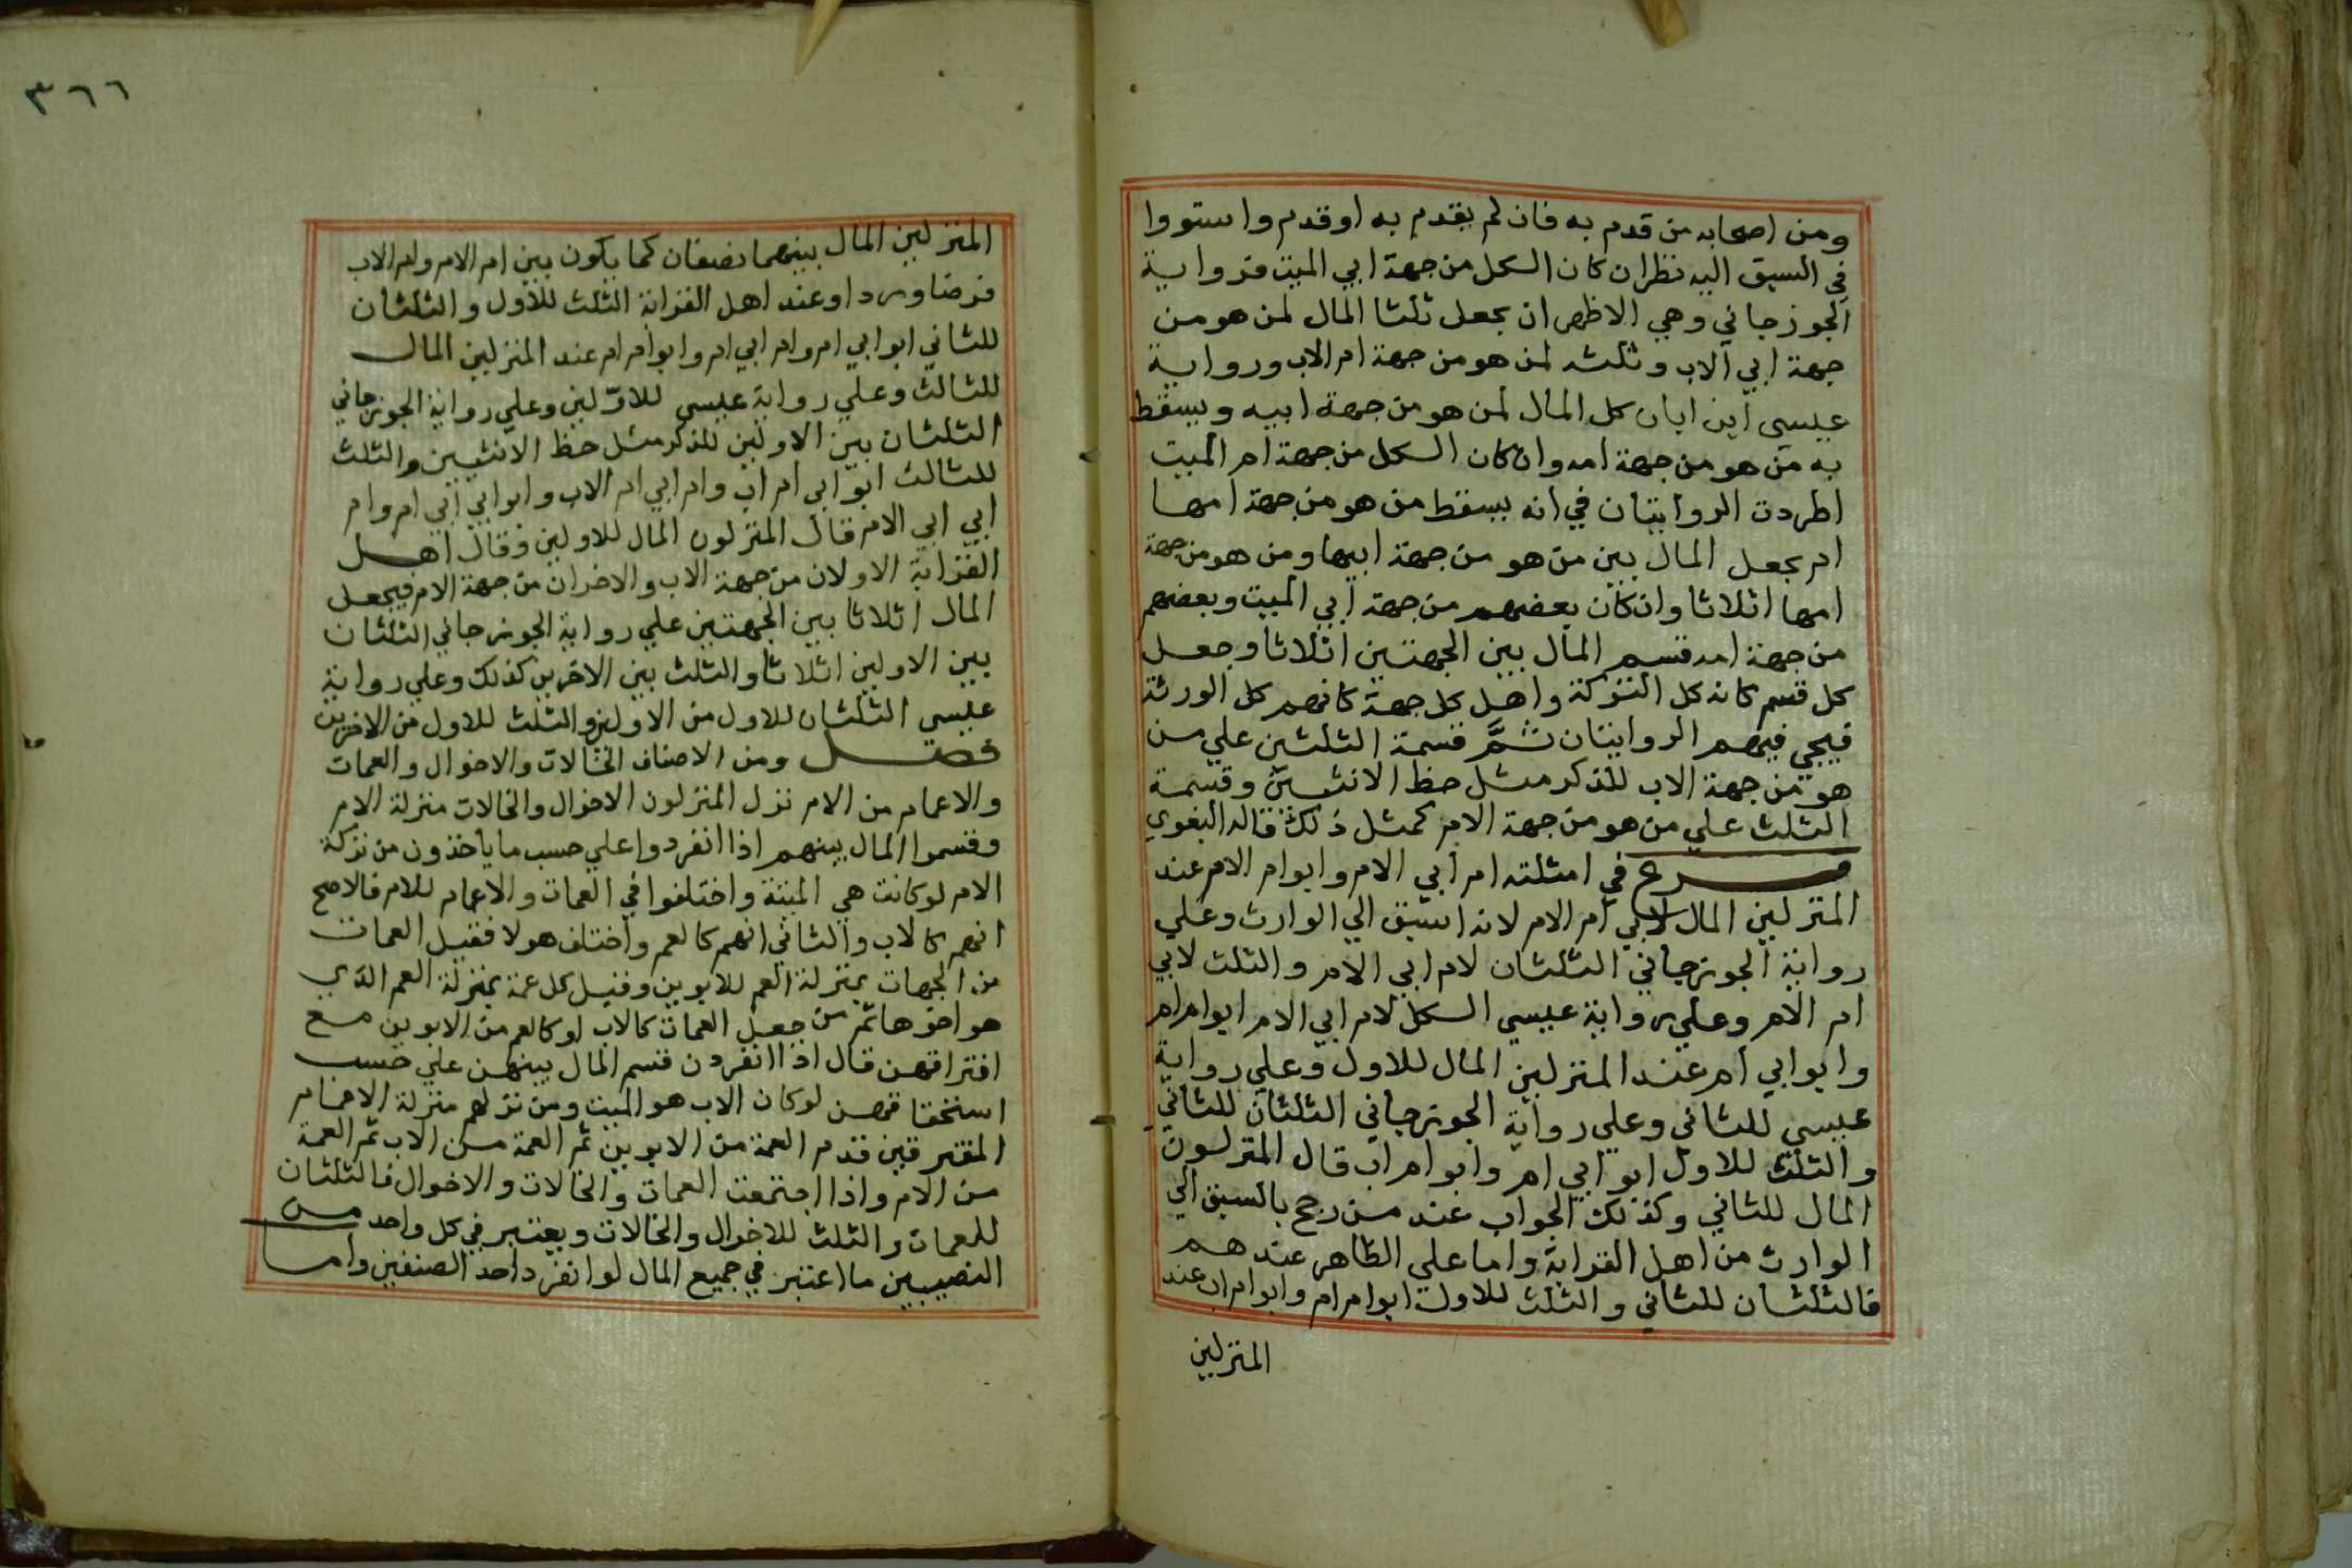 ومن اصحابه من قدم به فان لم يقدم به او قدم واستووا
في السبق اليه نظران كان الكل من جهة ابي الميت فرواية
الجوزجاني وهي الاظهر ان يجعل ثلثا المال لمن هو من
جهة ابي الاب وثلثه لمن هو من جهة ام الاب ورواية
عيسي ابن ابان كل المال لمن هو من جهة ابيه ويسقط
به من هو من جهة امه وان كان الكل من جهة ام الميت
اطردت الروايتان في انه يسقط من هو من جهة امها
ام يجعل المال بين من هو من جهة ابيها ومن هو من جهة
امها اثلاثا وان كان بعضهم من جهة ابي الميت وبعضهم
من جهة امه قسم المال بين الجهتين اثلاثا وجعل
كل قسم كانه كل التركة واهل كل جهة كانهم كل الورثة
فيجي فيهم الروايتان ثم قسمة الثلثين علي من
هو من جهة الاب للذكر مثل حظ الانثيين وقسمة
الثلث علي من هو من جهة الام كمثل ذلك قاله البغوي
فرع في امثلته ام ابي الام وابو ام الام عند
المنزلين المال لابي ام الام لانه اسبق الي الوارث وعلي
رواية الجوزجاني الثلثان لام ابي الام والثلث لابي
ام الام وعلي رواية عيسي الكل لام ابي الام ابو ام ام
وابو ابي ام عند المنزلين المال للاول وعلي رواية
عيسي للثاني وعلي رواية الجوزجاني الثلثان للثاني
والثلث للاول ابو ابي ام وابو ام اب قال المنزلون
المال للثاني وكذلك الجواب عند من رجح بالسبق الي
الوارث من اهل القرابة واما علي الظاهر عندهم
فالثلثان للثاني والثلث للاول ابو ام ام وابو ام اب عند
المنزلين
٣٦٦
المنزلين المال بينهما نصفان كما يكون بين ام الام وام الاب
فرضا وردا وعند اهل القرابة الثلث للاول والثلثان
للثاني ابو ابي ام وام ابي ام وابو ام ام عند المنزلين المال
للثالث وعلي رواية عيسي للاولين وعلي رواية الجوزجاني
الثلثان بين الاولين للذكر مثل حظ الانثيين والثلث
للثالث ابو ابي ام اب وام ابي ام الاب وابو ابي ابي ام وام
ابي ابي الام قال المنزلون المال للاولين وقال اهل
القرابة الاولان من جهة الاب والاخران من جهة الام فيجعل
المال اثلاثا بين الجهتين علي رواية الجوزجاني الثلثان
بين الاولين اثلاثا والثلث بين الاخرين كذلك وعلي رواية
عيسي الثلثان للاول من الاولين والثلث للاول من الاخرين
فصل ومن الاصناف الخالات والاخوال والعمات
والاعمام من الام نزل المنزلون الاخوال والخالات منزلة الام
وقسموا المال بينهم اذا انفردوا علي حسب ما ياخذون من تركة
الام لو كانت هي الميتة واختلفوا في العمات والاعمام للام فالاصح
انهم كالاب والثاني انهم كالعم واختلف هولا فقيل العمات
من الجهات بمنزلة العم للابوين وقيل كل عمة بمنزلة العم الذي
هو اخوها ثم من جعل العمات كالاب او كالعم من الابوين مع
افتراقهن قال اذا انفردن قسم المال بينهن علي حسب
استحقاقهن لو كان الاب هو الميت ومن نزلهم منزلة الاعمام
المفترقين قدم العمة من الابوين ثم العمة من الاب ثم العمة
من الام واذا اجتمعت العمات والخالات والاخوال فالثلثان
للعمات والثلث للاخوال والخالات ويعتبر في كل واحد من
النصيبين ما اعتبر في جميع المال لو انفرد احد الصنفين واما